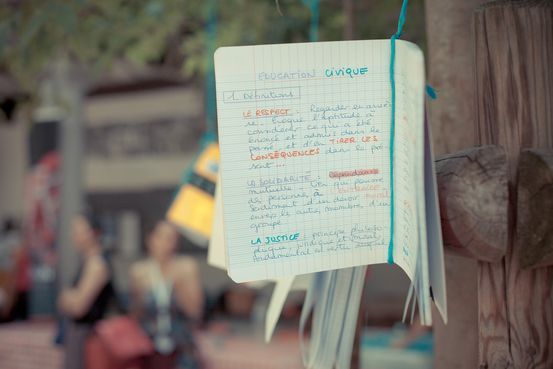 EDUCATION CIVIQUE
1. Définitions
LE RESPECT : Regarder en arriè-
re. Evoque l'aptitude à
considérer ce qui a été
énoncé et admis dans le
passé, et d'en TIRER LES
CONSÉQUENCES dans le pré-
sent...
LA SOLIDARITÉ : Dépendance
mutuelle. Lien qui pousse
des personnes à
sentiment d'un devoir moral
envers les autres membres d'un
groupe
LA JUSTICE : principe philoso-
phique, juridique et moral
fondamental et vertu